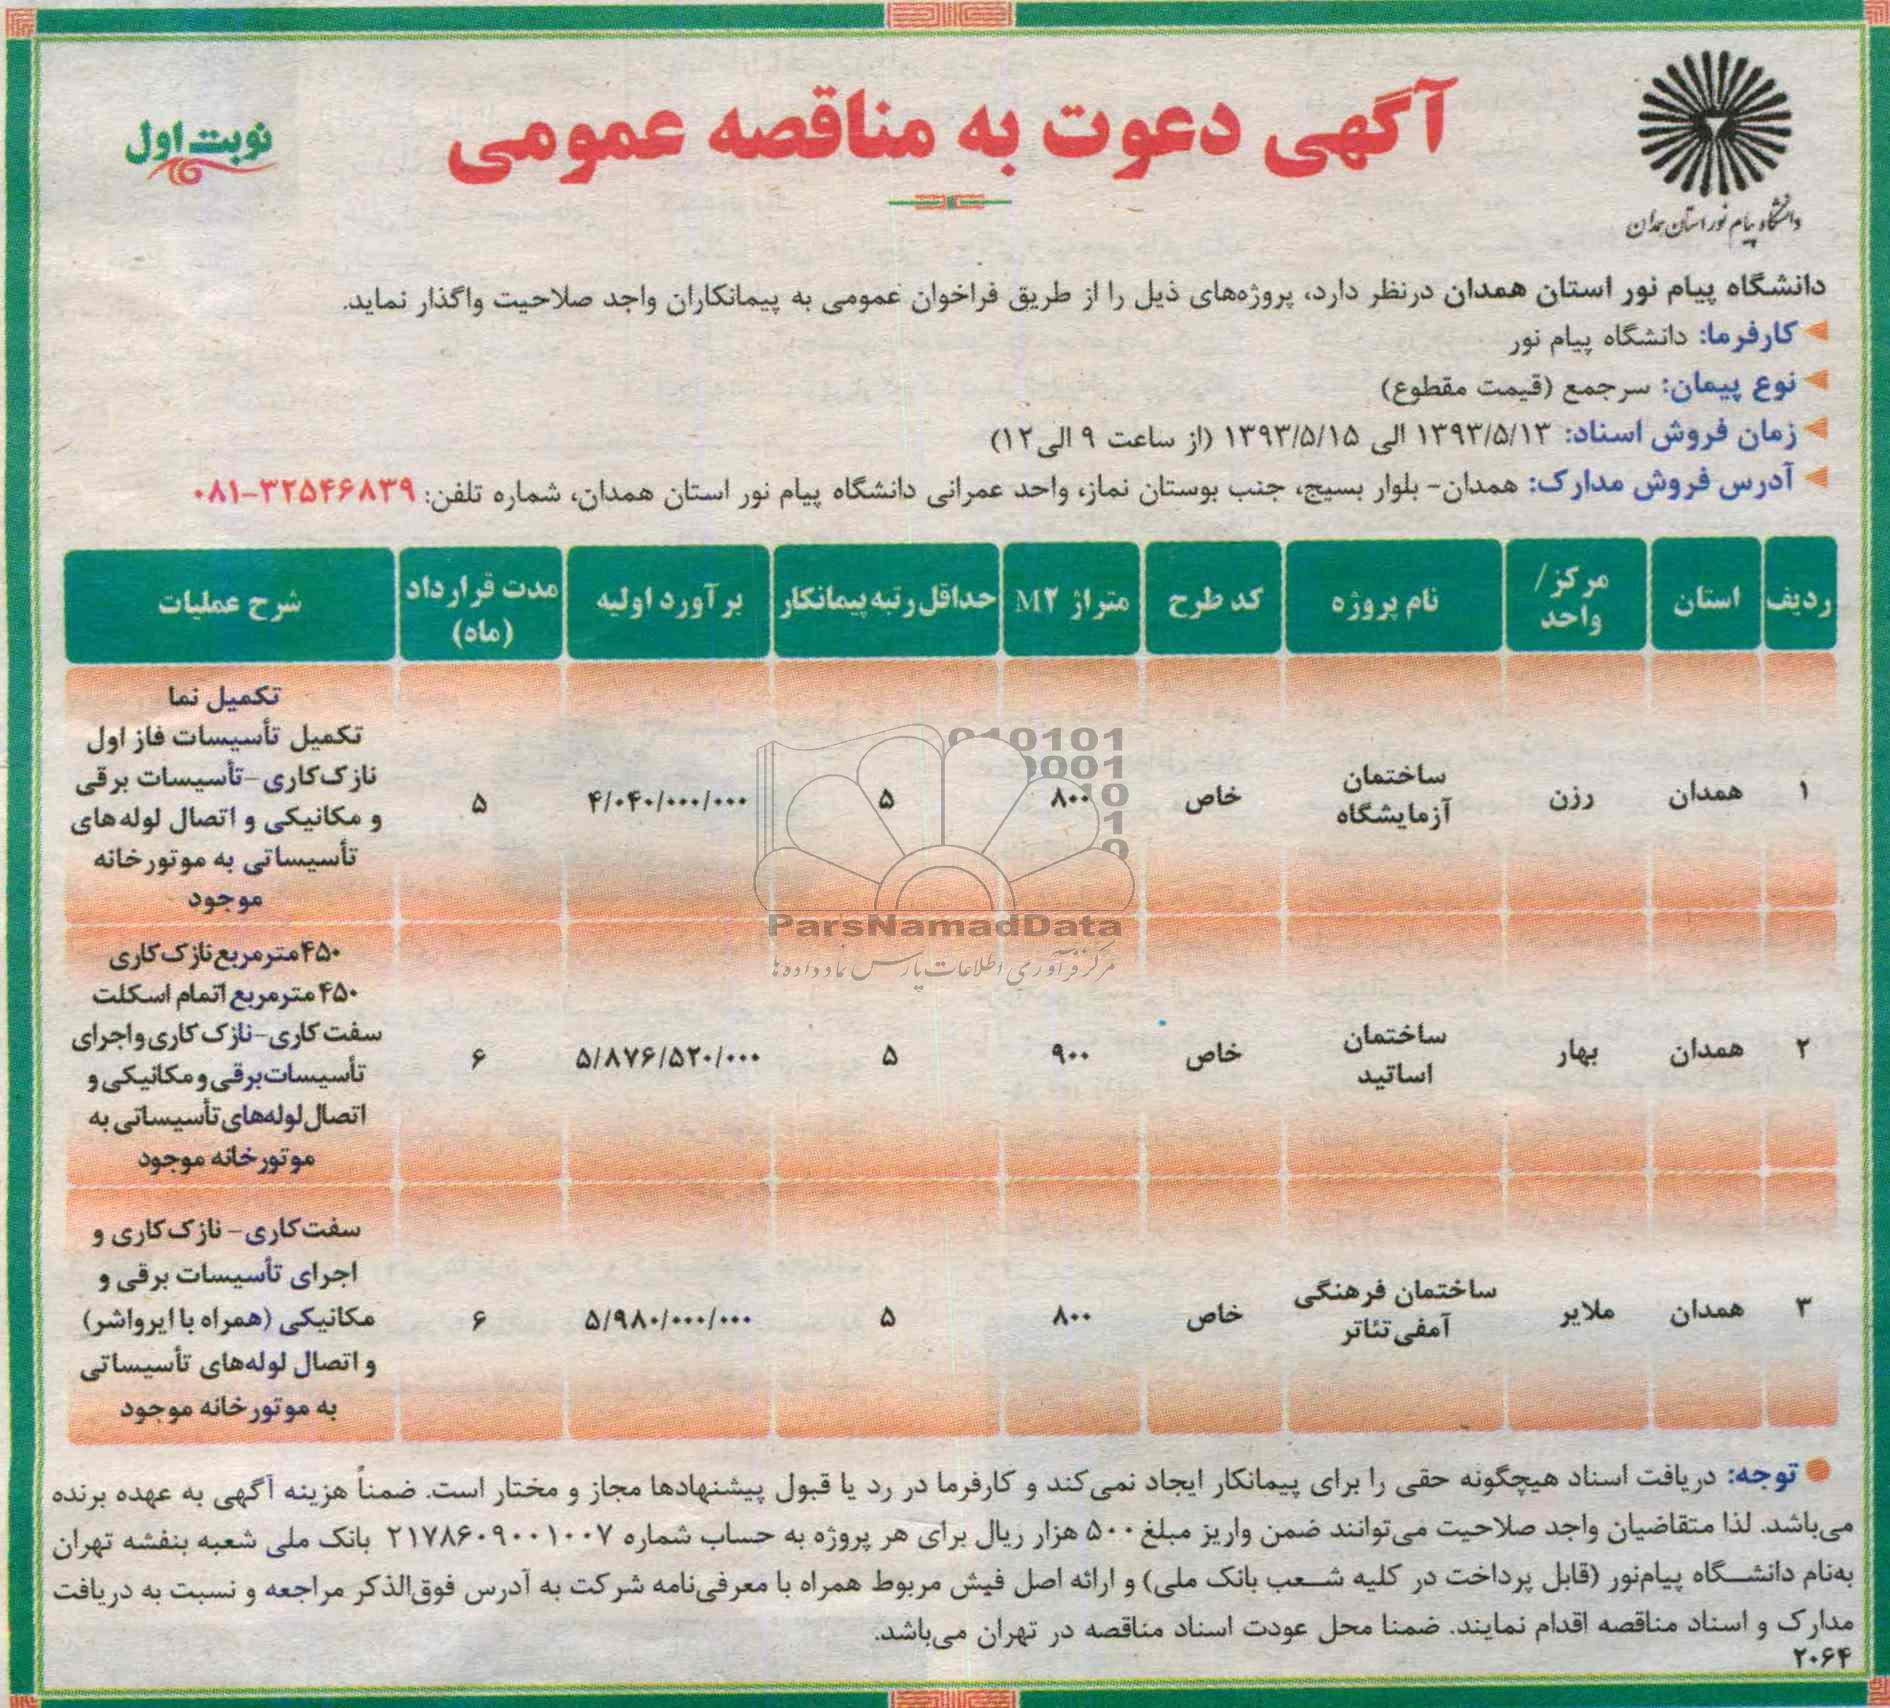 دانشگاه پیام نور استان همدان
آگهی دعوت به مناقصه عمومی
نوبت اول
دانشگاه پیام نور استان همدان درنظر دارد، پروژه‌های ذیل را از طریق فراخوان عمومی به پیمانکاران واجد صلاحیت واگذار نماید.
کارفرما: دانشگاه پیام نور
نوع پیمان: سرجمع (قیمت مقطوع)
زمان فروش اسناد: ۱۳۹۳/۵/۱۳ الی ۱۳۹۳/۵/۱۵ (از ساعت ۹ الی ۱۲)
آدرس فروش مدارک: همدان- بلوار بسیج، جنب بوستان نماز، واحد عمرانی دانشگاه پیام نور استان همدان، شماره تلفن: ۳۲۵۴۶۸۳۹-۰۸۱
ردیف
استان
مرکز/
واحد
نام پروژه
کد طرح
متراژ M۲
حداقل رتبه پیمانکار
برآورد اولیه
مدت قرارداد
(ماه)
شرح عملیات
۱
همدان
رزن
ساختمان
آزمایشگاه
خاص
۸۰۰
۵
۴/۰۴۰/۰۰۰/۰۰۰
۵
تکمیل نما
تکمیل تأسیسات فاز اول
نازک‌کاری-تأسیسات برقی
و مکانیکی و اتصال لوله‌های
تأسیساتی به موتورخانه
موجود
۲
همدان
بهار
ساختمان
اساتید
خاص
۹۰۰
۵
۵/۸۷۶/۵۲۰/۰۰۰
۶
۴۵۰مترمربع نازک‌کاری
۴۵۰مترمربع اتمام اسکلت
سفت‌کاری-نازک‌کاری و اجرای
تأسیسات برقی و مکانیکی و
اتصال لوله‌های تأسیساتی به
موتورخانه موجود
۳
همدان
ملایر
ساختمان فرهنگی
آمفی تئاتر
خاص
۸۰۰
۵
۵/۹۸۰/۰۰۰/۰۰۰
۶
سفت‌کاری- نازک‌کاری و
اجرای تأسیسات برقی و
مکانیکی (همراه با ایرواشر)
و اتصال لوله‌های تأسیساتی
به موتورخانه موجود
010101
0001
10
1
0
ParsNamadData
مرکز فرآوری اطلاعات پارس نماد داده‌ها
توجه: دریافت اسناد هیچگونه حقی را برای پیمانکار ایجاد نمی‌کند و کارفرما در رد یا قبول پیشنهادها مجاز و مختار است. ضمناً هزینه آگهی به عهده برنده
می‌باشد. لذا متقاضیان واجد صلاحیت می‌توانند ضمن واریز مبلغ ۵۰۰ هزار ریال برای هر پروژه به حساب شماره ۲۱۷۸۶۰۹۰۰۱۰۰۷ بانک ملی شعبه بنفشه تهران
به‌نام دانشگاه پیام‌نور (قابل پرداخت در کلیه شعب بانک ملی) و ارائه اصل فیش مربوط همراه با معرفی‌نامه شرکت به آدرس فوق‌الذکر مراجعه و نسبت به دریافت
مدارک و اسناد مناقصه اقدام نمایند. ضمنا محل عودت اسناد مناقصه در تهران می‌باشد.
۲۰۶۴